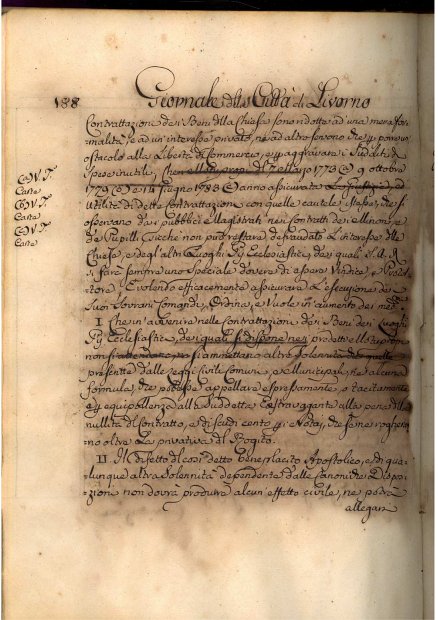 188
Giornale della Città di Livorno
Contrattazioni dei Beni della Chiesa sono ridotte ad una mera for
malità, e ad un' interesse privato, ne ad altro servono che per porre un
ostacolo alla Libertà di Commercio, e per aggravare i Sudditi di
Spese inutili, che 7 1773 (a) 9 ottobre
1779 (b) e 14 Giugno 1783 (c) anno assicurata
utilità di dette contrattazioni con quelle cautele istesse, che si
osservano dai pubblici Magistrati nei Contratti dei Minori, e
de Pupilli, sicchè non può restare defraudato L'interesse della
Chiesa, e degl' altri Luoghi Pij Ecclesiastici, dei quali S. A. R.
si farà sempre uno Speciale dovere di essere Vindice, e
tore. E volendo efficacemente assicurare L'esecuzione dei
Suoi Sovrani Comandi, Ordina, e Vuole in aumento dei med.
I Che in avvenire nelle contrattazioni dei Beni dei Luoghi
Pij Ecclesiastici, dei quali si dispone nei predetti
non si altre Solennità
prescritte dalle Leggi Civili Comuni, e Municipali, ne alcuna
formula, che potesse appellare espressamente, o tacitamente
per equipollenza alla Suddetta Estravagante alla pena della
nullità di Contratto, e di Scudi cento per i Notari, che se ne roghera
no oltre La privativa del Rogito.
II Il difetto del così detto Beneplacito Apostolico, e di qua
lunque altra Solennità dipendente dalle Canoniche Disposi
zioni non dovrà produrre alcun' effetto civile, ne potrà
allegarsi
Cav. T.
Carte
Cav. T.
Carte
Cav. T.
Carte